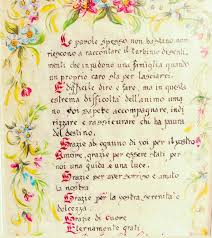 Le parole spesso non bastano, non
riescono a raccontare il turbine di senti-
menti che invadono una famiglia quando
un proprio caro sta per lasciarci.
È difficile dire e fare, ma in questa
estrema difficoltà dell'animo uma-
no voi sapete accompagnare, indi-
rizzare e rassicurare chi ha paura
del destino.
Grazie ad ognuno di voi per il vostro
Amore, grazie per essere stati per
noi una guida e una luce.
Grazie per aver sorriso e amato
la nostra
Grazie per la vostra serenità e
dolcezza.
Grazie di Cuore
Eternamente grati